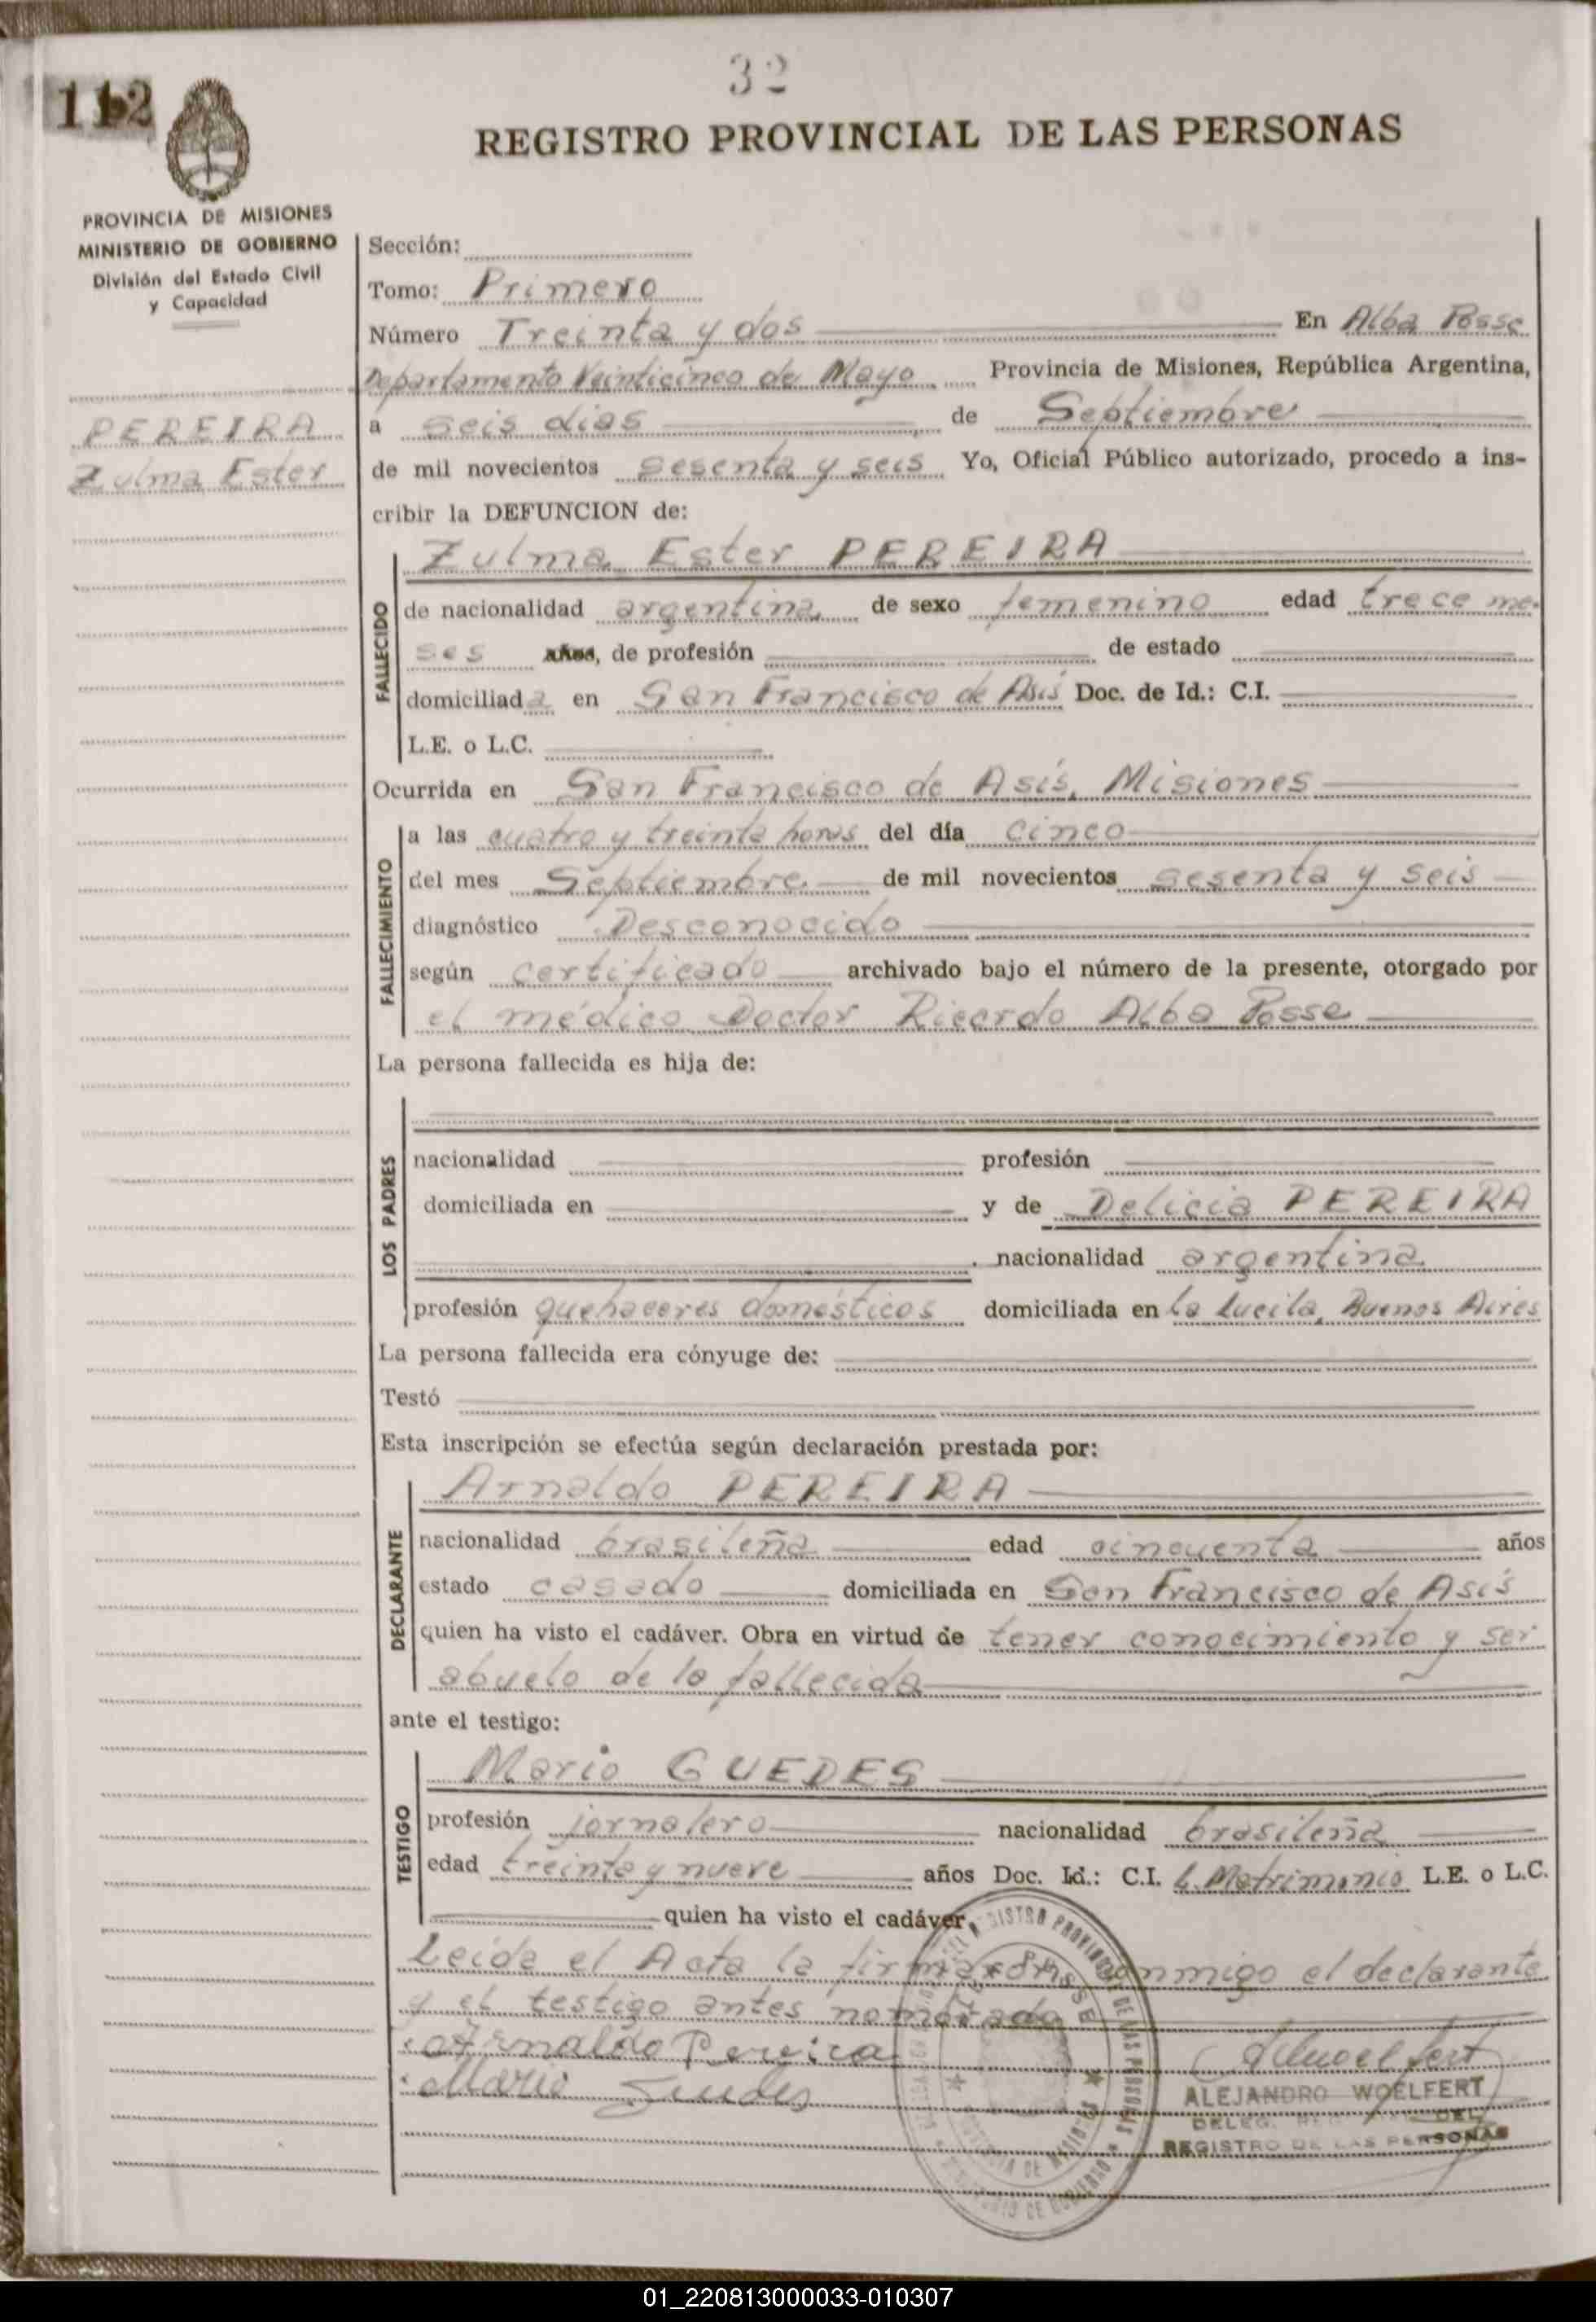 32
112
REGISTRO PROVINCIAL DE LAS PERSONAS
PROVINCIA DE MISIONES
MINISTERIO DE GOBIERNO
División del Estado Civil
y Capacidad
PEREIRA
Zulma Ester
Sección:
Tomo: Primero
Número Treinta y dos En Alba Posse
Departamento Veinticinco de Mayo Provincia de Misiones, República Argentina,
a seis dias de Septiembre
de mil novecientos sesenta y seis Yo, Oficial Público autorizado, procedo a ins-
cribir la DEFUNCION de:
FALLECIDO
Zulma Ester PEREIRA
de nacionalidad argentina de sexo femenino edad trece me-
ses años, de profesión de estado
domiciliada en San Francisco de Asís Doc. de Id.: C.I.
L.E. o L.C.
Ocurrida en San Francisco de Asís, Misiones
FALLECIMIENTO
a las cuatro y treinta horas del día cinco
del mes Septiembre de mil novecientos sesenta y seis
diagnóstico Desconocido
según certificado archivado bajo el número de la presente, otorgado por
el médico Doctor Ricardo Alba Posse
La persona fallecida es hija de:
LOS PADRES
nacionalidad profesión
domiciliada en y de Delicia PEREIRA
. nacionalidad argentina
profesión quehaceres domésticos domiciliada en La Lucila, Buenos Aires
La persona fallecida era cónyuge de:
Testó
Esta inscripción se efectúa según declaración prestada por:
DECLARANTE
Arnaldo PEREIRA
nacionalidad brasileña edad cincuenta años
estado casado domiciliada en San Francisco de Asís
quien ha visto el cadáver. Obra en virtud de tener conocimiento y ser
abuelo de la fallecida
ante el testigo:
TESTIGO
Mario GUEDES
profesión jornalero nacionalidad brasileña
edad treinta y nueve años Doc. Id.: C.I. L. Matrimonio L.E. o L.C.
quien ha visto el cadáver.
Leída el Acta la firmaron conmigo el declarante
y el testigo antes nombrado
Arnaldo Pereira
Mario Guedes
ALEJANDRO WOELFERT
DEL
REGISTRO DE LAS PERSONAS
01_220813000033-010307